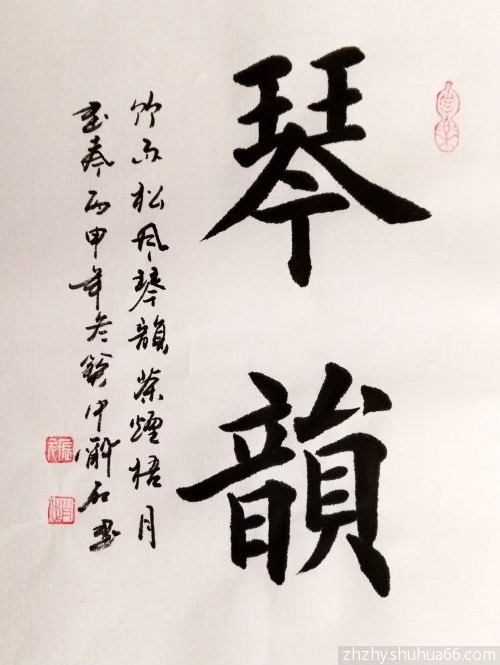 琴韻
竹雨松風琴韻茶煙梧月
書聲丙申年冬石書
zhzhy.shuhua66.com